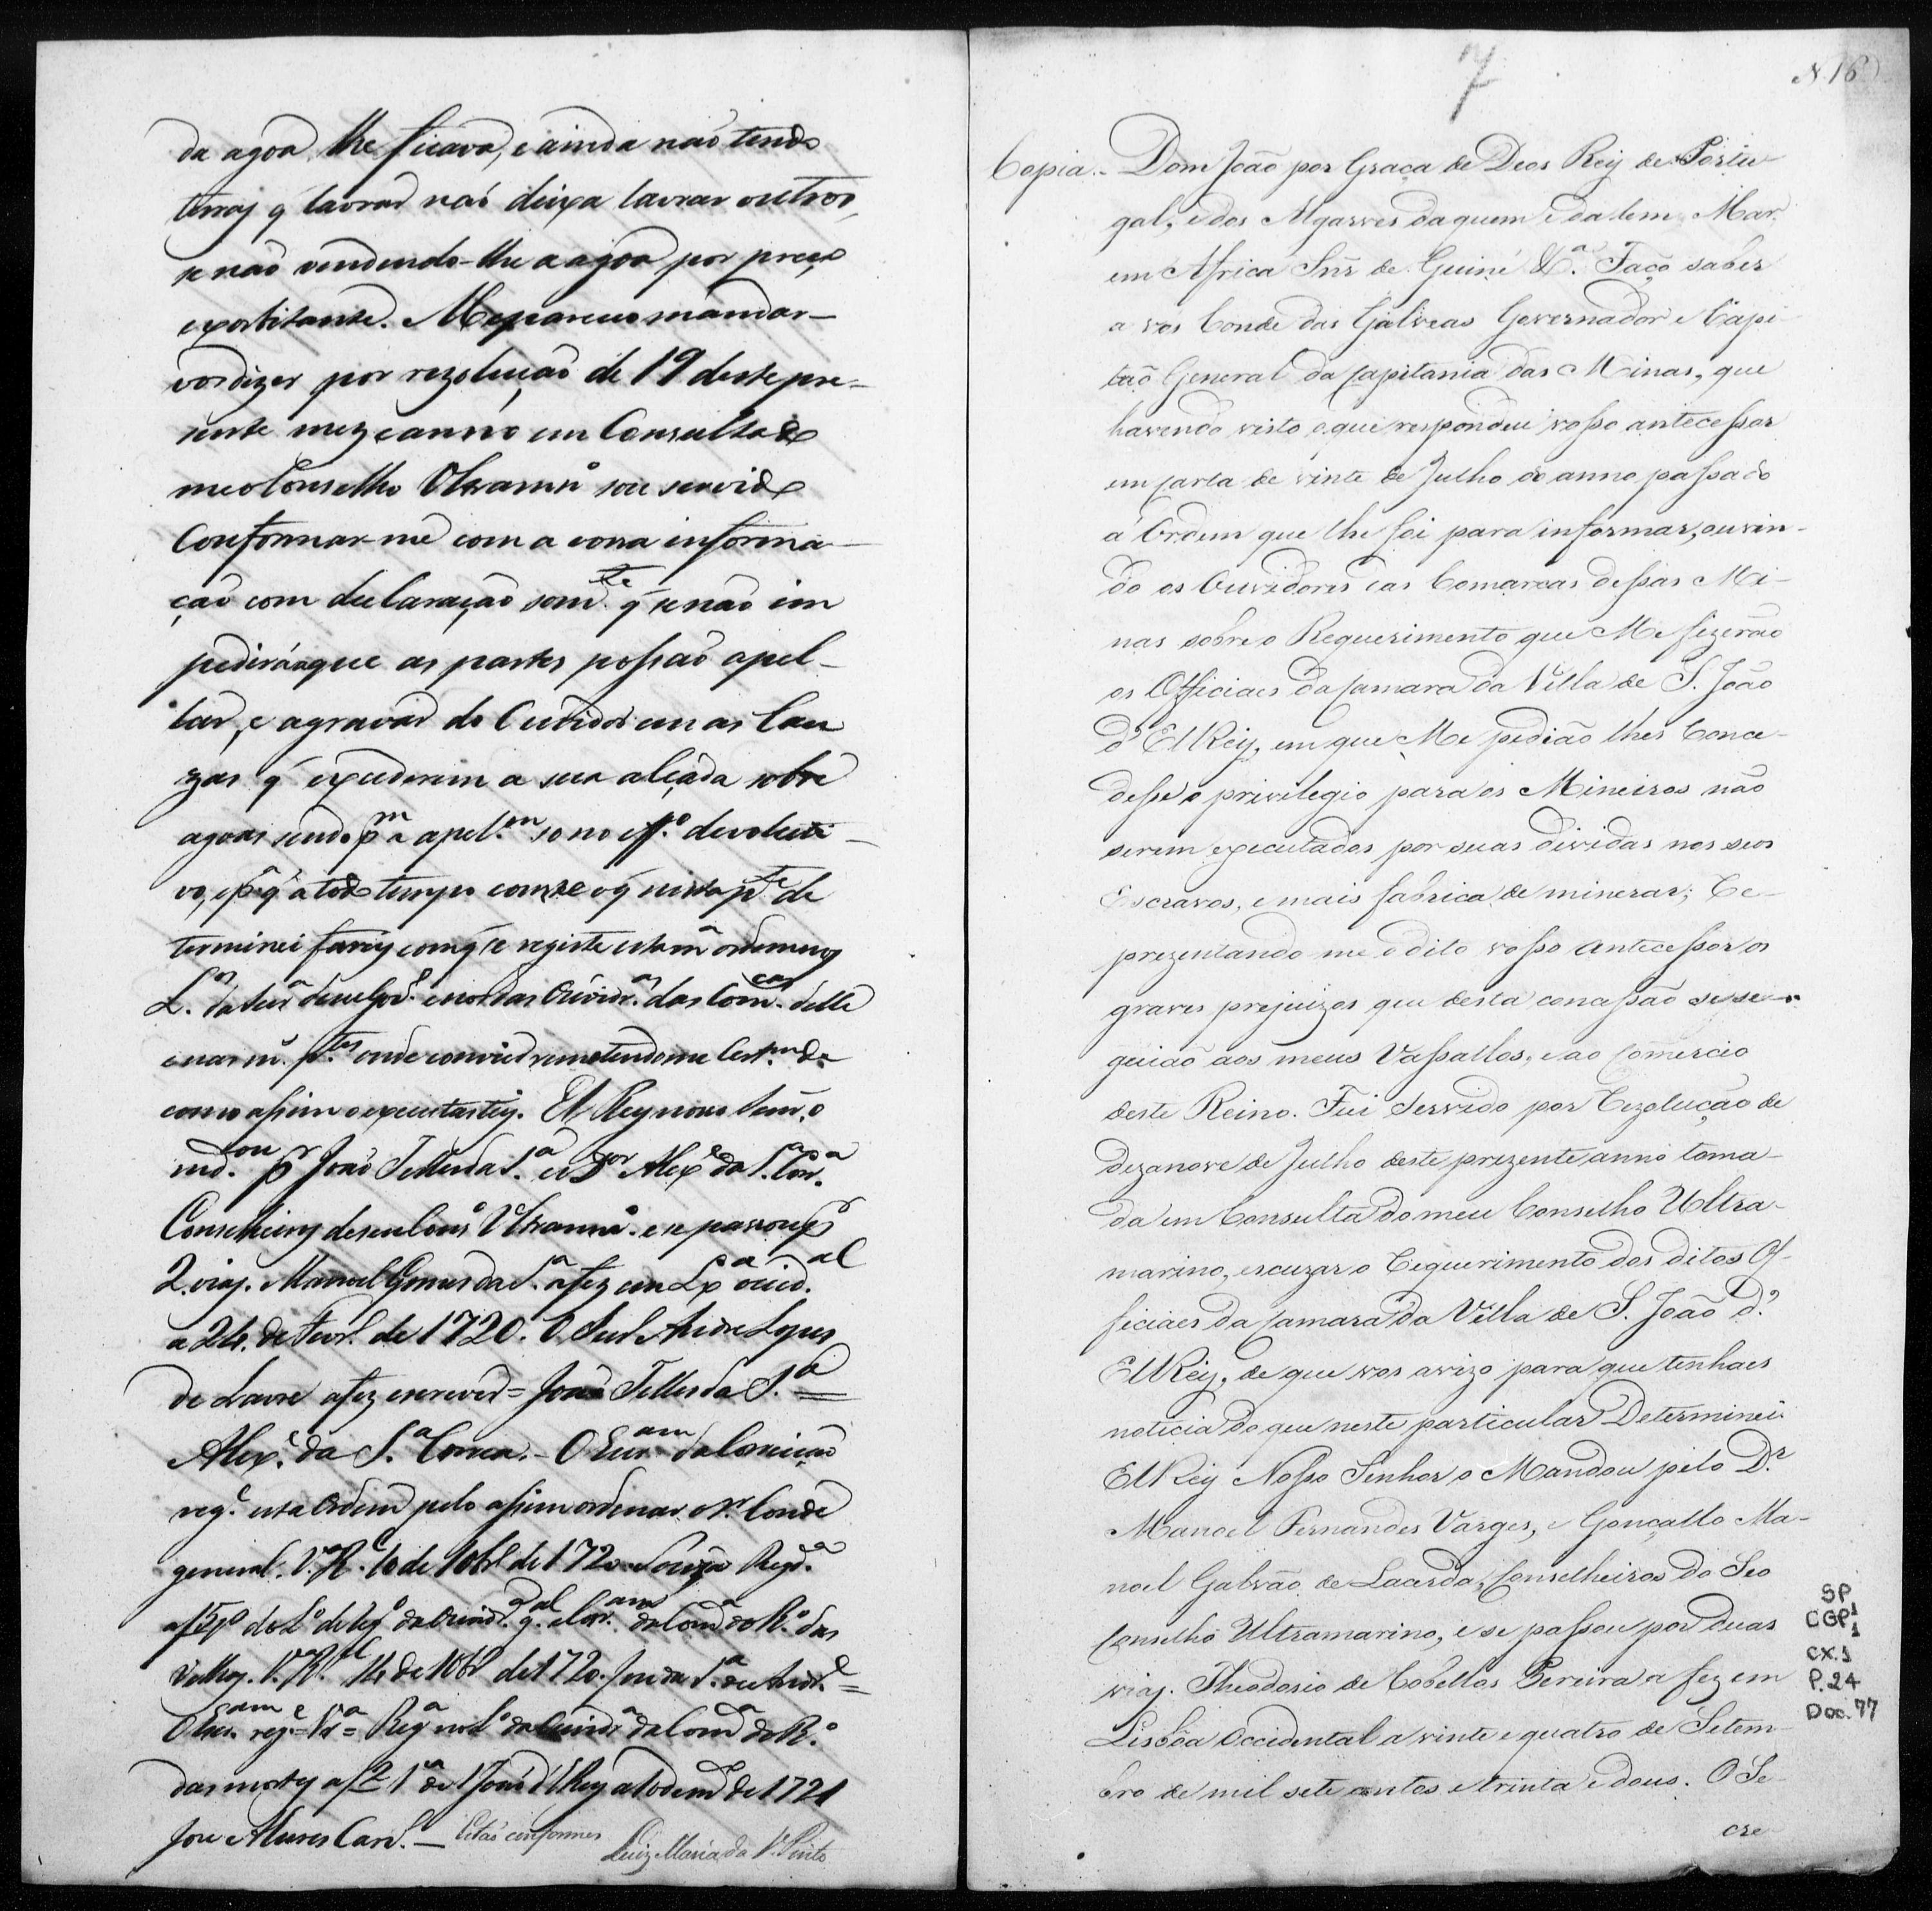 da agoa lhe ficava, e ainda não tendo
terras q̃ lavrar não deixa lavrar outros,
se não vendendo-lhe a agoa por preço
exorbitante. Me pareceo mandar-
vos dizer por rezolução de 19 deste pre-
sente mez e anno em Consulta do
meo Conselho Ultramr.º sou servido
Conformar-me com a vossa informa-
ção com declaração som.te q̃ se não im
pedirá a que as partes possaõ apel-
lar, e agravar do Ouvidor em as Cau
zas q̃ excederem a sua alçada sobre
agoas sendo pm a apel.am so no eff.º devoluti-
vo, e p.ª q̃ a todo tempo conste o q̃ nesta p.te de
terminei fareis com q̃ se registe esta mª ordem nos
L.os da Secr.ª desse Gov.º e nos das Ouvidor.as das Com.cas delle
e nas m.s p.tes onde convier remetendome Cert.am de
como assim o executasteis. El Rey nosso Senr. o
md.ou pr João Telles da S.ª e o D.or Alex.e da S.ª Corr.ª
Conselheiros do seu Cons.º Ultramr.º e se passou pr
2 vias. Manoel Gomes da S.ª a fez em Lx.ª ocid.al
a 24. de Fevr.º de 1720. O Secr.º Andre Lopes
de Lavre a fez escrever = João Telles da S.ª =
Alex.e da S.ª Correa. - O Escr.am da Correição
reg.e esta Ordem pelo assim ordenar o Sr. Conde
general. V.ª R.ª 10 de 10br.º de 1720 Souza Regd.ª
a f 57 do L.º de Reg.º da Ouvid.ª g.al e Corr.am da Com.ª do R.º das
Velhas. V.ª R.al 14 de 10br.º de 1720. Joze da S.ª de And.e =
O Escr.am reg.e = Vr.ª = Reg.ª no L.º da Ouvidr.ª da Com.ª do R.º
das mortes a f 2 1.ª de S João d'El Rey a 1 o de md de 1721
Joze Alures Card.º — Estás conformes Luiz Maria da S.ª Pinto
7
N. 16
Copia. - Dom João por Graça de Deos Rey de Portu-
gal, e dos Algarves daquem e da lem Mar
em Africa Snr̃ de Guiné &.ª Faço saber
a vós Conde das Galveas Governador e Capi-
tão General da Capitania das Minas, que
havendo visto o que respondeu vosso antecessor
em carta de vinte de Julho do anno passado
á Ordem que lhe foi para informar, ouvin-
do os Ouvidores das Comarcas dessas Mi-
nas sobre o Requerimento que Me fizerão
os Officiaes da Camara da Villa de S. João
d'El Rey, em que Me pedião lhes Conce-
desse o privilegio para os Mineiros não
serem executados por suas dividas nos seos
Escravos, e mais fabrica de minerar; Re-
prezentando me o dito vosso antecessor os
graves prejuizos que desta concessão se se-
guião aos meus Vassallos, e ao Comercio
deste Reino. Fui Servido por Rezolução de
dezanove de Julho deste prezente anno toma-
da em Consulta do meu Conselho Ultra-
marino, escuzar o Requerimento dos ditos Of-
ficiaes da Camara da Villa de S. João d'
El Rey, de que vos avizo para que tenhaes
noticia do que neste particular Determinei
El Rey Nosso Senhor o Mandou pelo D.r
Manoel Fernandes Varges, e Gonçallo Ma-
noel Galvão de Lacerda, Conselheiros do Seo
Conselho Ultramarino, e se passou por duas
vias. Theodosio de Cobellos Pereira a fez em
Lisboa Occidental a vinte e quatro de Setem-
bro de mil sete centos e trinta e dous. O Se-
cre
SP
CGP1
CX.1
P.24
Doc.77